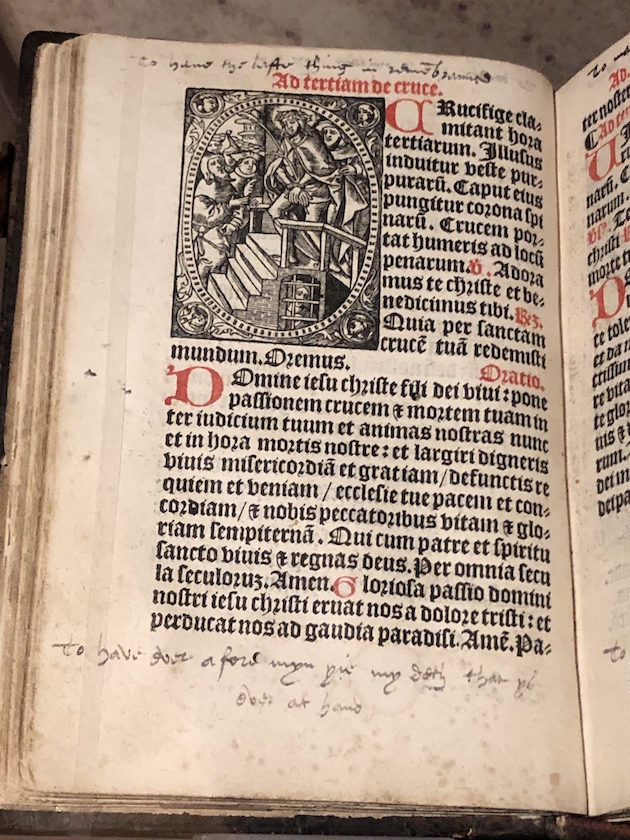 to have the laste thing in remēbraunce
Ad tertiam de cruce.
CRucifige cla⸗
mitant hora
tertiarum. Illusus
induitur veste pur⸗
purarū. Caput eius
pungitur corona spi
narū. Crucem por⸗
tat humeris ad locū
penarum. v̄. Adora
mus te christe et be⸗
nedicimus tibi. Rꝫ.
Quia per sanctam
crucē tuā redemisti
mundum. Oremus.
Oratio.
DOmine iesu christe fili dei viui: pone
passionem crucem ⁊ mortem tuam in
ter iudicium tuum et animas nostras nunc
et in hora mortis nostre: et largiri digneris
viuis misericordiā et gratiam/defunctis re
quiem et veniam / ecclesie tue pacem et con⸗
cordiam/⁊ nobis peccatoribus vitam ⁊ glo⸗
riam sempiternā. Qui cum patre et spiritu
sancto viuis ⁊ regnas deus. Per omnia secu
la seculoruꝫ. Amen. Gloriosa passio domini
nostri iesu christi eruat nos a dolore tristi: et
perducat nos ad gaudia paradisi. Amē. Pa⸗
To have ever afore myn yie my deth that ys
ever at hand
To
Ad
ter noster
Ad ter
U
naru
narum.
Te
christi
morte
D
te tole
et da
crissim
re vita
te glor
nis ⁊
rum.
dei m
dei pa
to